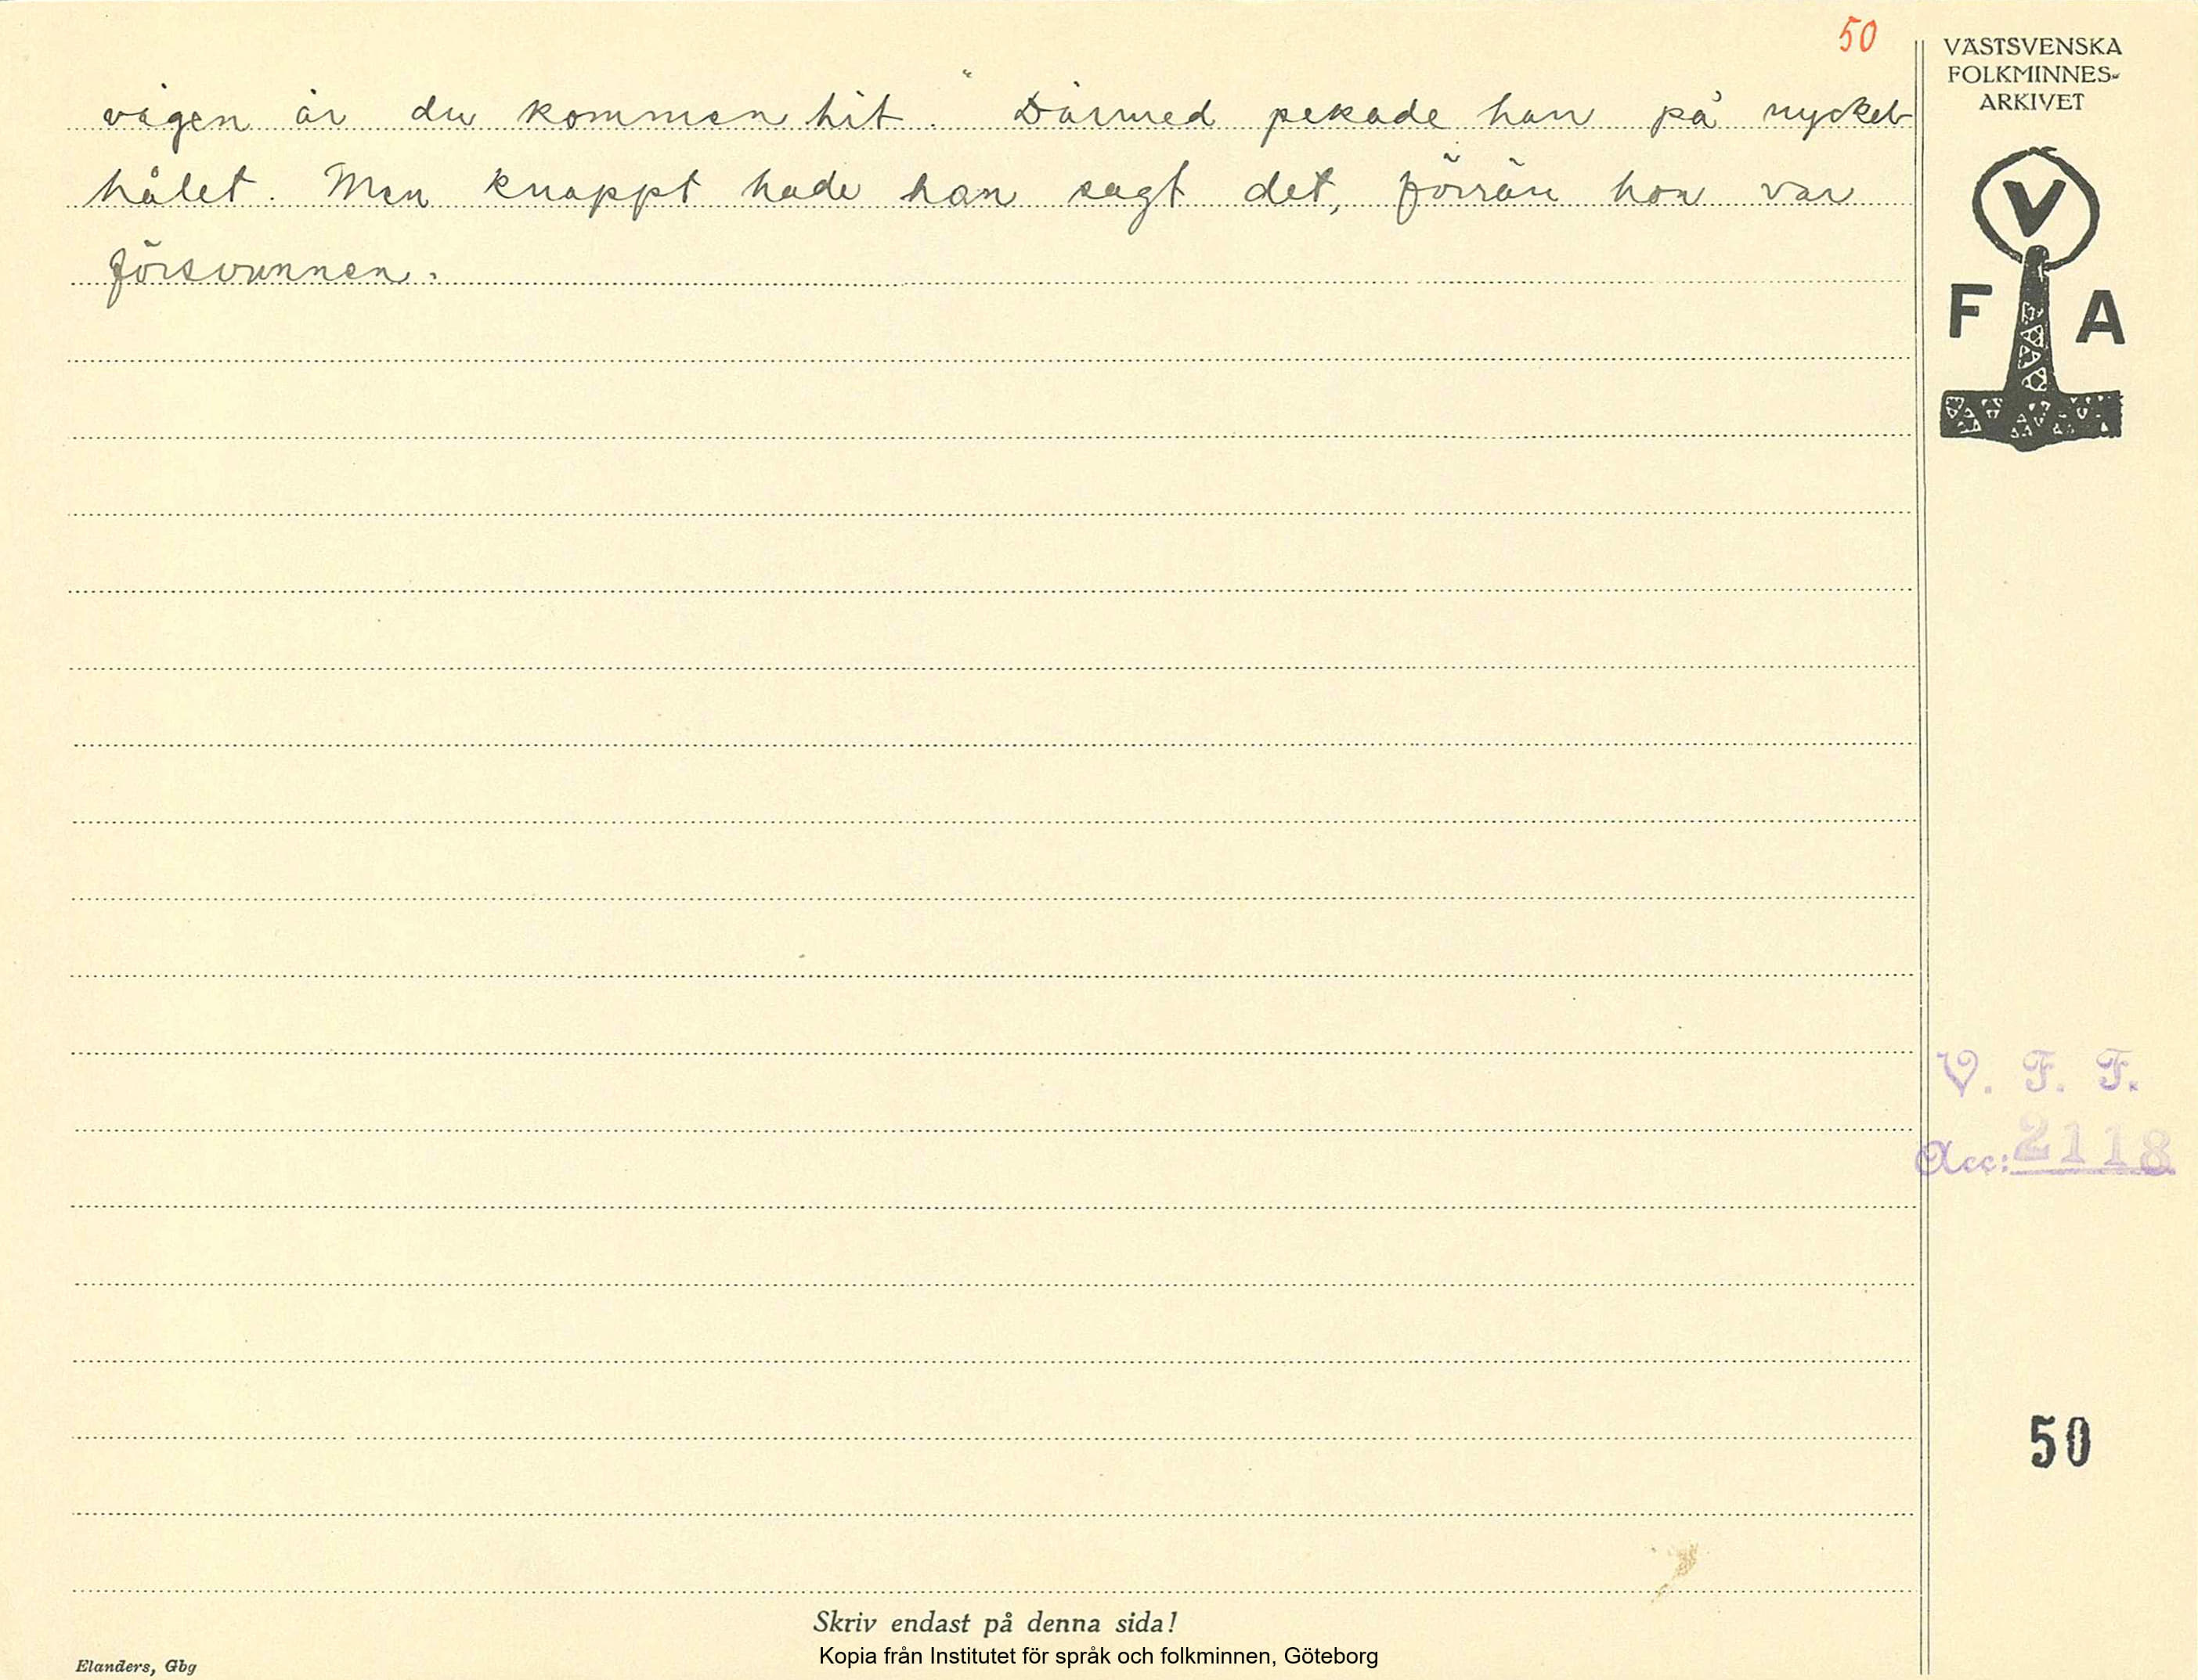 50
vägen är du kommen hit." Därmed pekade han på nyckel-
hålet. Men knappt hade han sagt det, förrän hon var
försvunnen.
VÄSTSVENSKA
FOLKMINNES-
ARKIVET
V
F A
V. F. F.
Acc: 2118
50
Skriv endast på denna sida!
Kopia från Institutet för språk och folkminnen, Göteborg
Elanders, Gbg